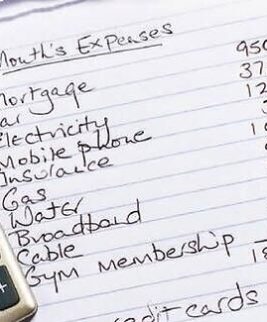 Month's Expenses
Mortgage 950
Car 37
Electricity 12
Mobile phone
Insurance
Gas
Water
Broadband
Cable
Gym membership
credit cards